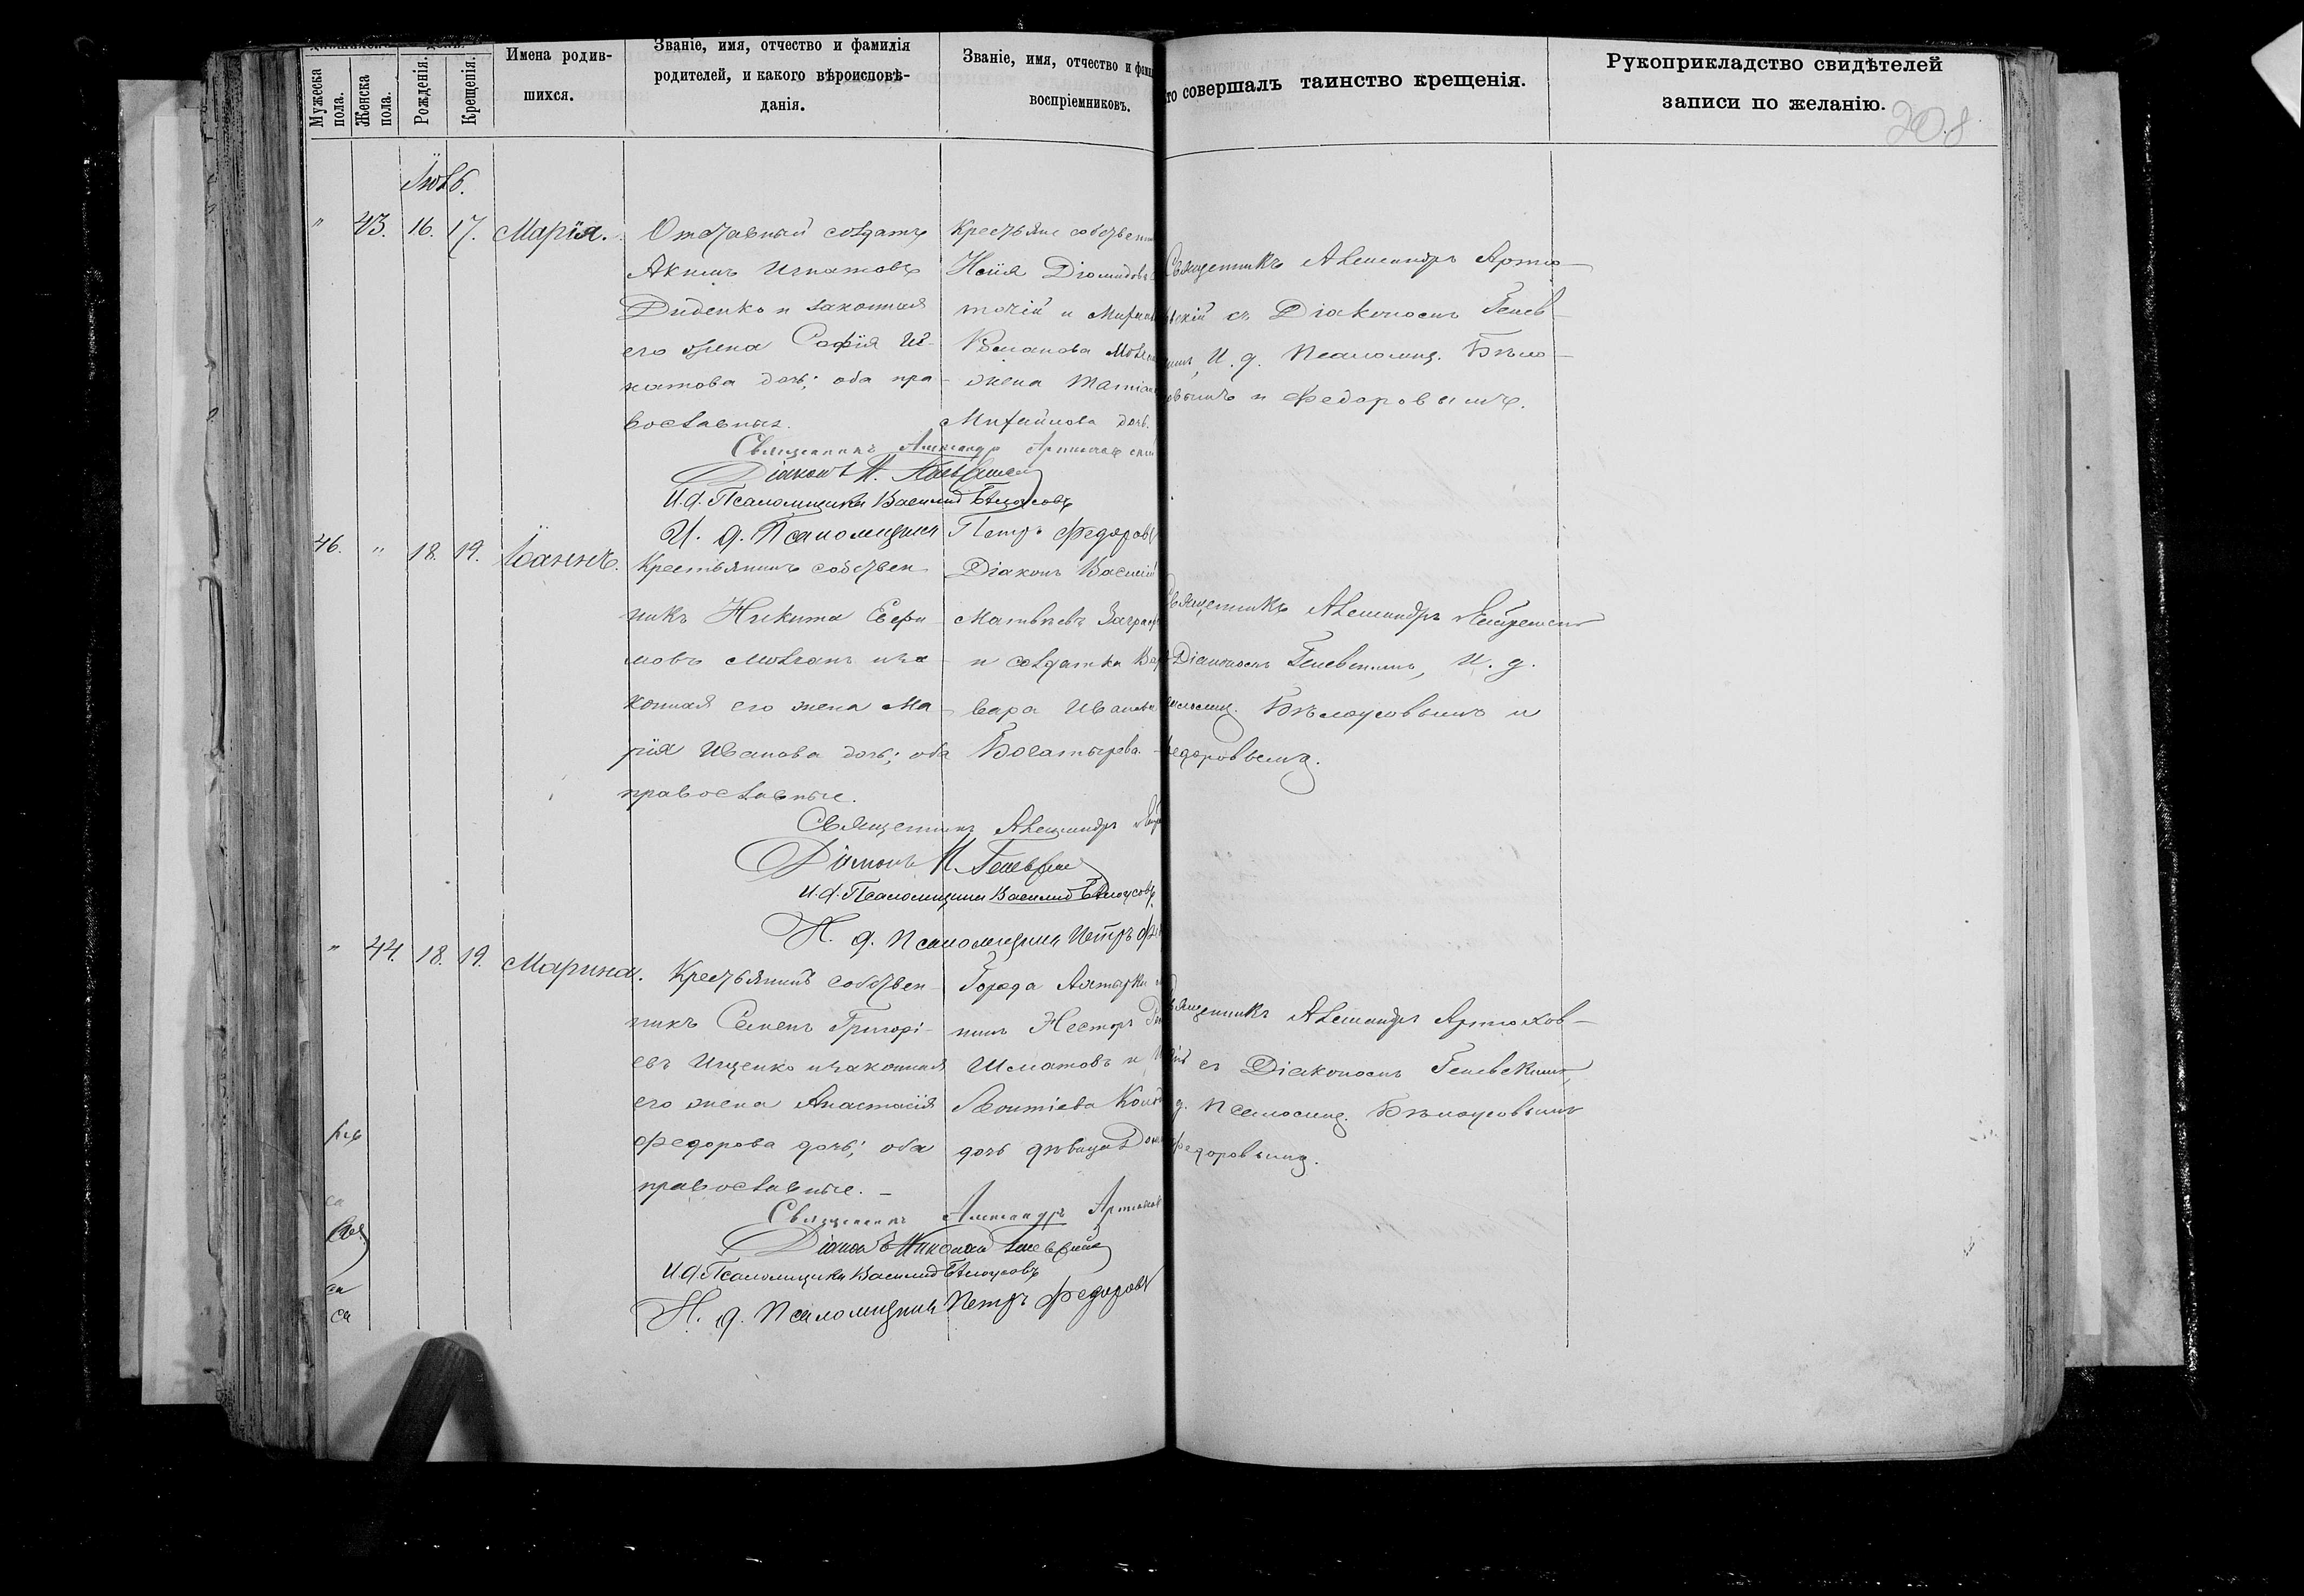 день
Мужеска пола.
Женска пола.
Рожденія.
Крещенія.
Имена родив-
шихся.
Званіе, имя, отчество и фамилія
родителей, и какого вѣроисповѣ-
данія.
Званіе, имя, отчество и
воспріемниковъ.
совершалъ таинство крещенія.
Рукоприкладство свидѣтелей
записи по желанію.
208
Іюль.
" 43. 16. 17. Марія.
Отставный солдатъ
Акимъ Игнатовъ
Диденко и законная
его жена Софія Иг-
натова дочь; оба пра-
вославных.
Крестьяне собствен
Діомидовъ
и
Романова
жена
Михайлова дочь.
Священникъ Александръ Артю-
съ Діакономъ Генев-
И. д. Псаломщ. Бѣло-
и Федоровымъ.
Священникъ Александръ
Діаконъ Н.
И. д. Псаломщика Василий Бѣлоусовъ
И. д. Псаломщика Петръ Федоровъ
46. " 18. 19. Іоаннъ.
Крестьянинъ собствен-
никъ Никита Ефи-
мовъ и за-
конная его жена Ма-
рія Иванова дочь; оба
православные.
Діаконъ Василій
Матвѣевъ
и солдатка Вар-
вара Иванова
Богатырева.
Священникъ Александръ
Діакономъ И. д.
Бѣлоусовымъ и
Федоровымъ.
Священникъ Александръ
Діаконъ Н.
И. д. Псаломщика Василий Бѣлоусовъ
И. д. Псаломщика Петръ
" 44. 18. 19. Марина.
Крестьянинъ собствен-
никъ Семенъ Григорі-
евъ Ищенко и законная
его жена Анастасія
Федорова дочь; оба
православные. –
Города Ахтырки
нинъ Несторъ
Шматовъ и
Леонтіева
дочь дѣвица
Священникъ Александръ Артюхов-
съ Діакономъ Геневскимъ,
д. Псаломщ. Бѣлоусовымъ
Федоровымъ.
Священникъ Александръ
Діаконъ Николай
И. д. Псаломщика Василий Бѣлоусовъ
И. д. Псаломщика Петръ Федоровъ